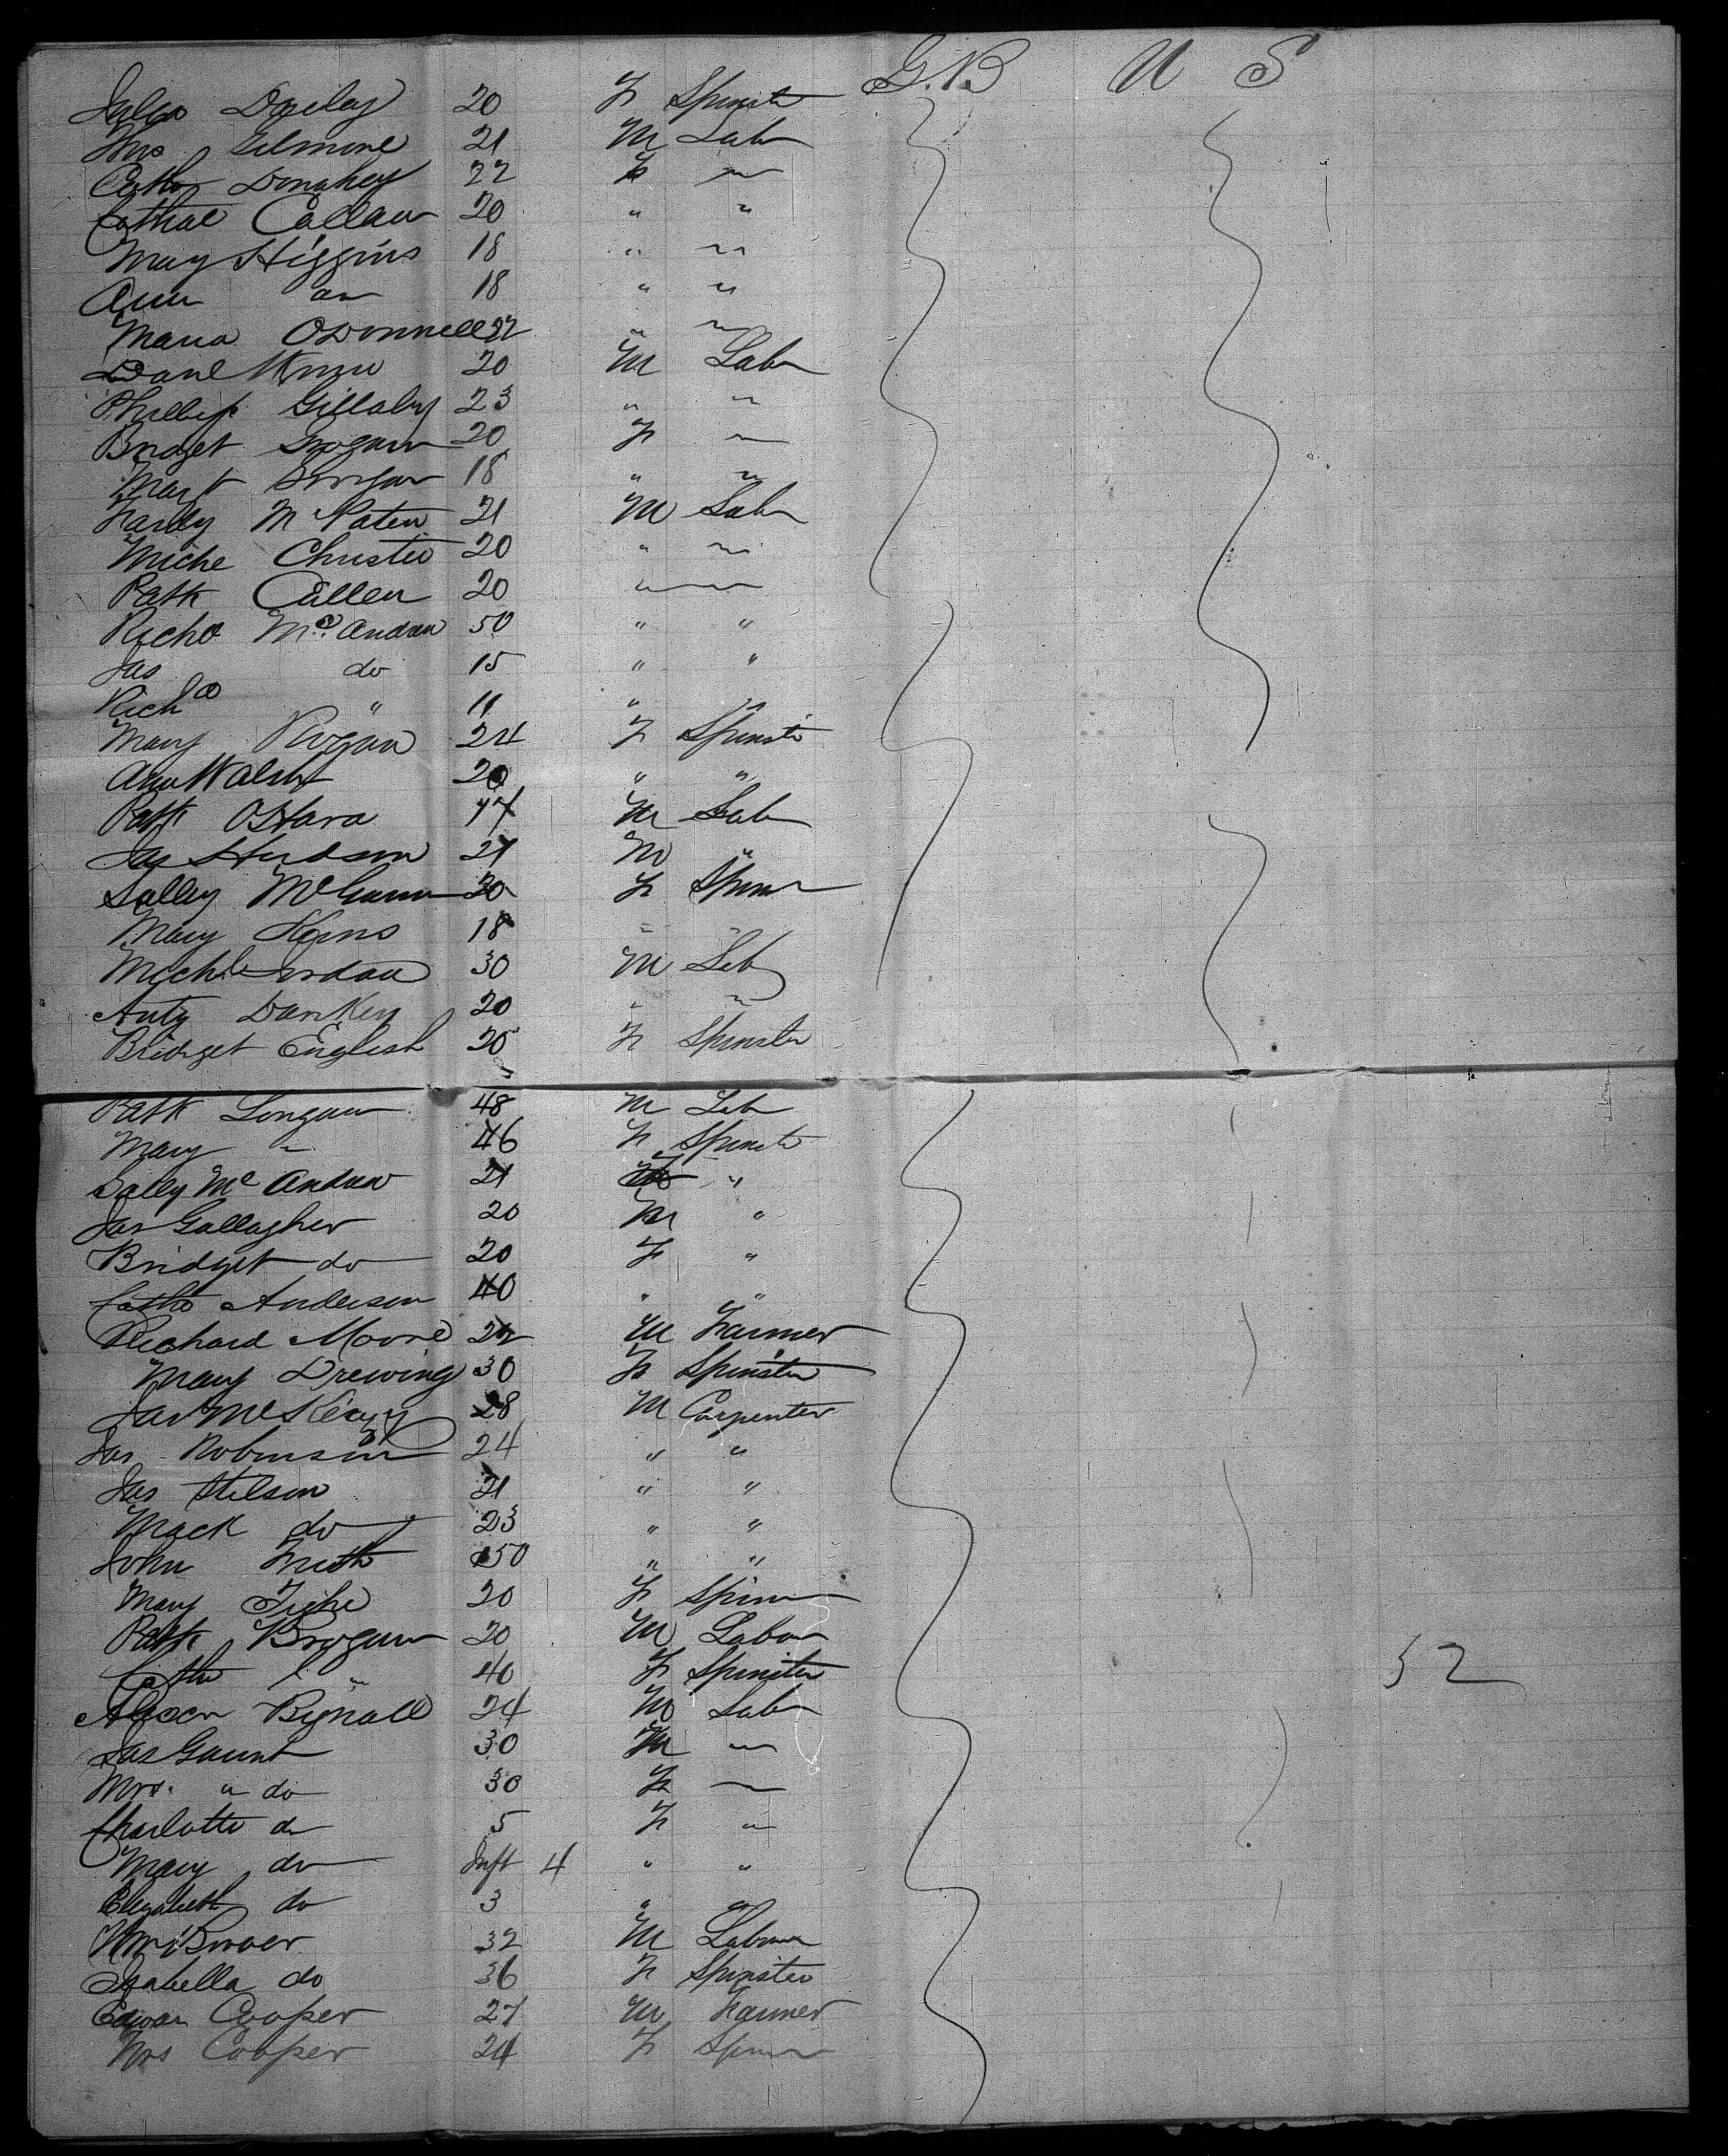 G.B U S
20 F Spinst
Gilmore 21 M Lab
Cath Donahey 22 F "
Callan 20 " "
Mary Higgins 18 " "
Ann do 18 " "
Maria ODonnell 22 " "
Danl 20 M Lab
Phillip Gillaby 23 " "
Bridget Grogan 20 F "
18 " "
21 M Lab
Miche Christie 20 " "
Patk Cullen 20 " "
Richd Mc Andrew 50 " "
Jas do 15 " "
Richd " 11 " "
Mary Rogan 24 F Spinst
Ann Walsh 20 " "
Patk OHara M Lab
Jas Hudson 21 M "
Salley McGann 30 F Spins
Mary Kerns 18 " "
Michl Jordan 30 M Lab
Anty 20 " "
Bridget English 20 F Spinster
Patk 48 M Lab
Mary " 46 F Spinst
Sally Mc Andrew 21 F "
Jas Gallagher 20 M "
Bridget do 20 F "
Cath Anderson 40 " "
Richard Moore 22 M Farmer
Mary Drewing 30 F Spinster
Jas 28 M Carpenter
Jas Robinson 24 " "
Jas 21 " "
Mack do 23 " "
John 50 " "
Mary Tighe 20 F Spins
Patk Brogan 20 M Labor
Cath " 40 F Spinster 52
24 M Lab
Jas Gaunt 30 M "
Mrs. " do 30 F "
Charlotte do 5 F "
Mary do Inft 4 " "
Elizabeth do 3 " "
Wm 32 M Labour
Isabella do 36 F Spinster
Edwar Cooper 27 M Farmer
Mrs Cooper 24 F Spins